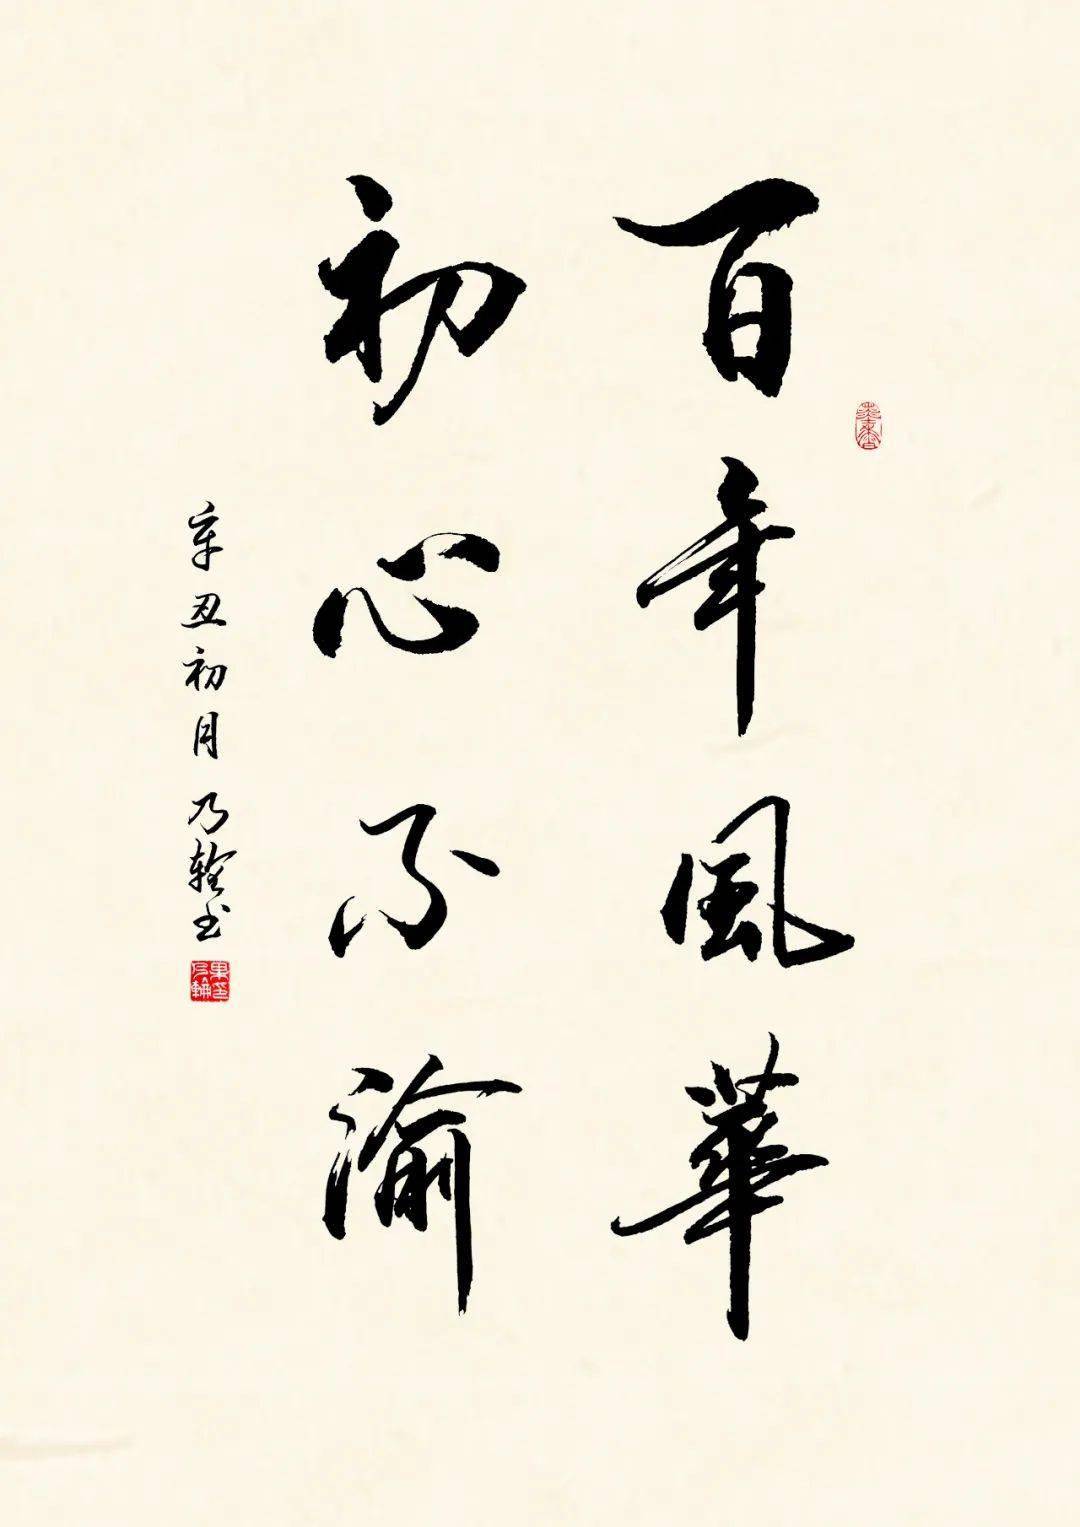 百年風華
初心不渝
辛丑初月 乃輪书